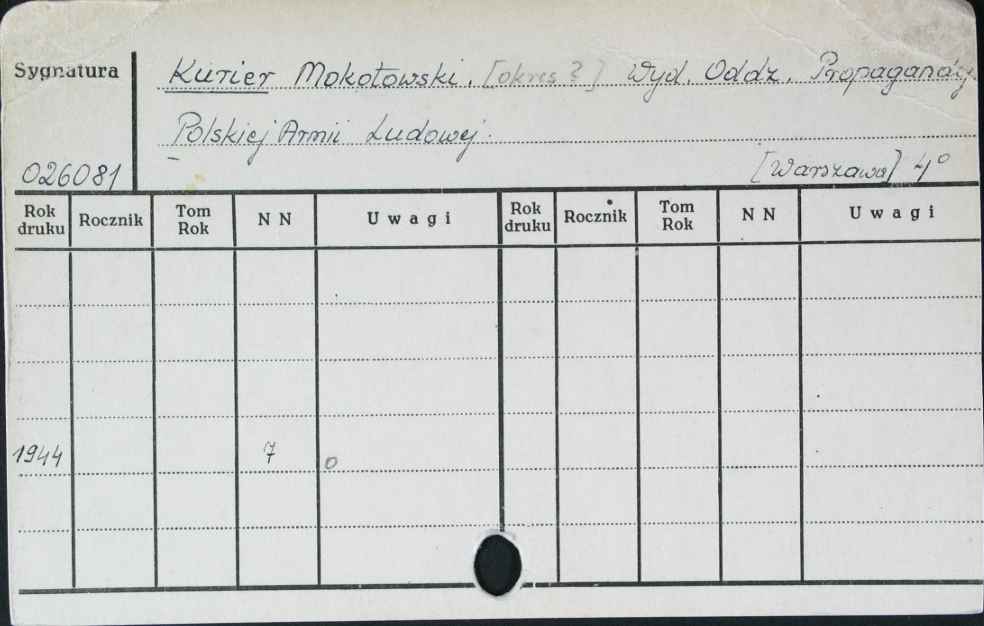 Sygnatura
Kurier Mokotowski. [okres ?] Wyd. Oddz. Propagandy
Polskiej Armii Ludowej.
026081
[Warszawa] 4°
Rok druku Rocznik Tom Rok N N Uwagi Rok druku Rocznik Tom Rok N N Uwagi
1944 7 o